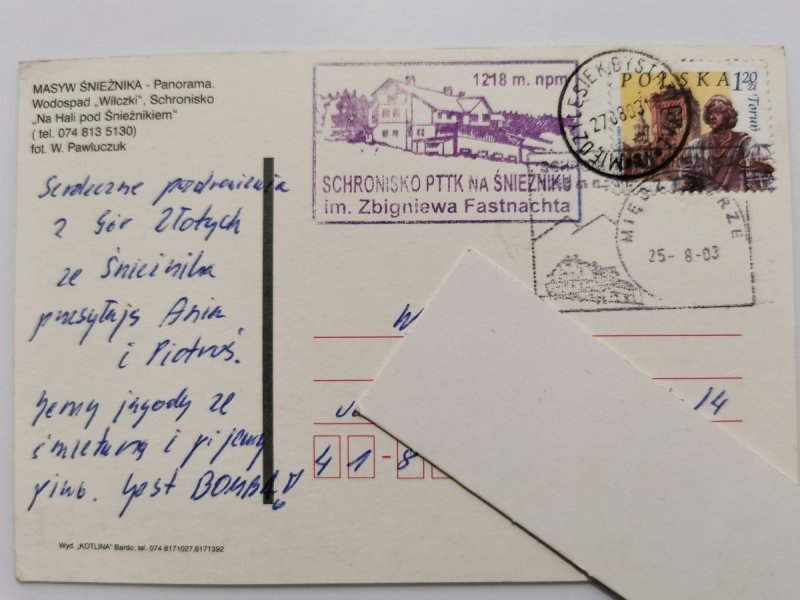 MASYW ŚNIEŻNIKA - Panorama.
Wodospad „Wilczki", Schronisko
„Na Hali pod Śnieżnikiem"
( tel. 074 813 5130)
fot. W. Pawluczuk
1218 m. npm
SCHRONISKO PTTK NA ŚNIEŻNIKU
im. Zbigniewa Fastnachta
POLSKA 1,20 zł
Toruń
27 08 03
25- 8-03
Serdeczne pozdrowienia
z Gór Złotych
ze Śnieżnika
przesyłają Ania
i Piotruś.
Jemy jagody ze
śmietaną i pijemy
piwo. Jest BOMBA!
14
41-8
Wyd. „KOTLINA" Bardo: tel. 074 8171027,8171392